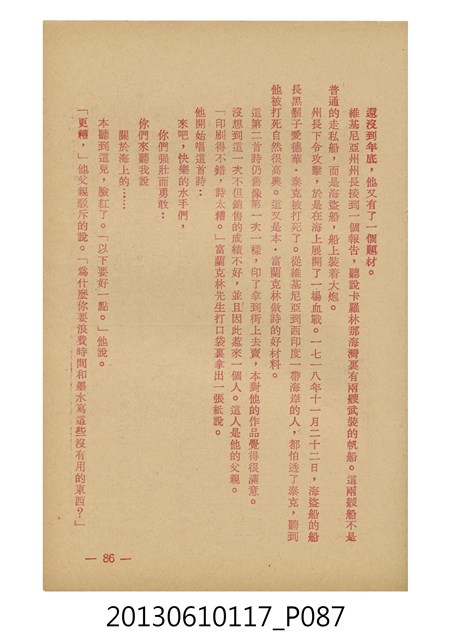 還沒到年底，他又有了一個題材。
維基尼亞州州長接到一個報告，聽說卡羅林那海灣裏有兩艘武裝的帆船。這兩艘船不是
普通的走私船，而是海盜船，船上裝着大炮。
州長下令攻擊，於是在海上展開了一場血戰。一七一八年十一月二十二日，海盜船的船
長黑鬍子愛德華·泰克被打死了。從維基尼亞到西印度一帶海岸的人，都怕透了泰克，聽到
他被打死自然很高興。這又是本·富蘭克林做詩的好材料。
這第二首詩仍舊像第一次一樣，印了拿到街上去賣，本對他的作品覺得很滿意。
沒想到這一次不但銷售的成績不好，並且因此惹來一個人。這人是他的父親。
「印刷得不錯，詩太糟。」富蘭克林先生打口袋裏拿出一張紙說。
他開始唱這首詩：
來吧，快樂的水手們，
你們強壯而勇敢：
你們來聽我說
關於海上的……
本聽到這兒，臉紅了。「以下要好一點。」他說。
「更糟，」他父親駁斥的說。「爲什麼你要浪費時間和墨水寫這些沒有用的東西？」
— 86 —
20130610117_P087